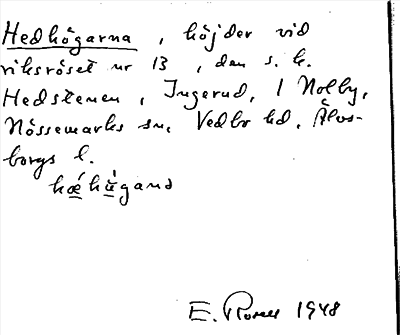 Hedhögarna, höjder vid
riksröset nr 13, den s. k.
Hedstenen, Ingerud, 1 Nolby,
Nössemarks sn, Vedbo hd, Älvs-
borgs l.
E. Rosell 1948